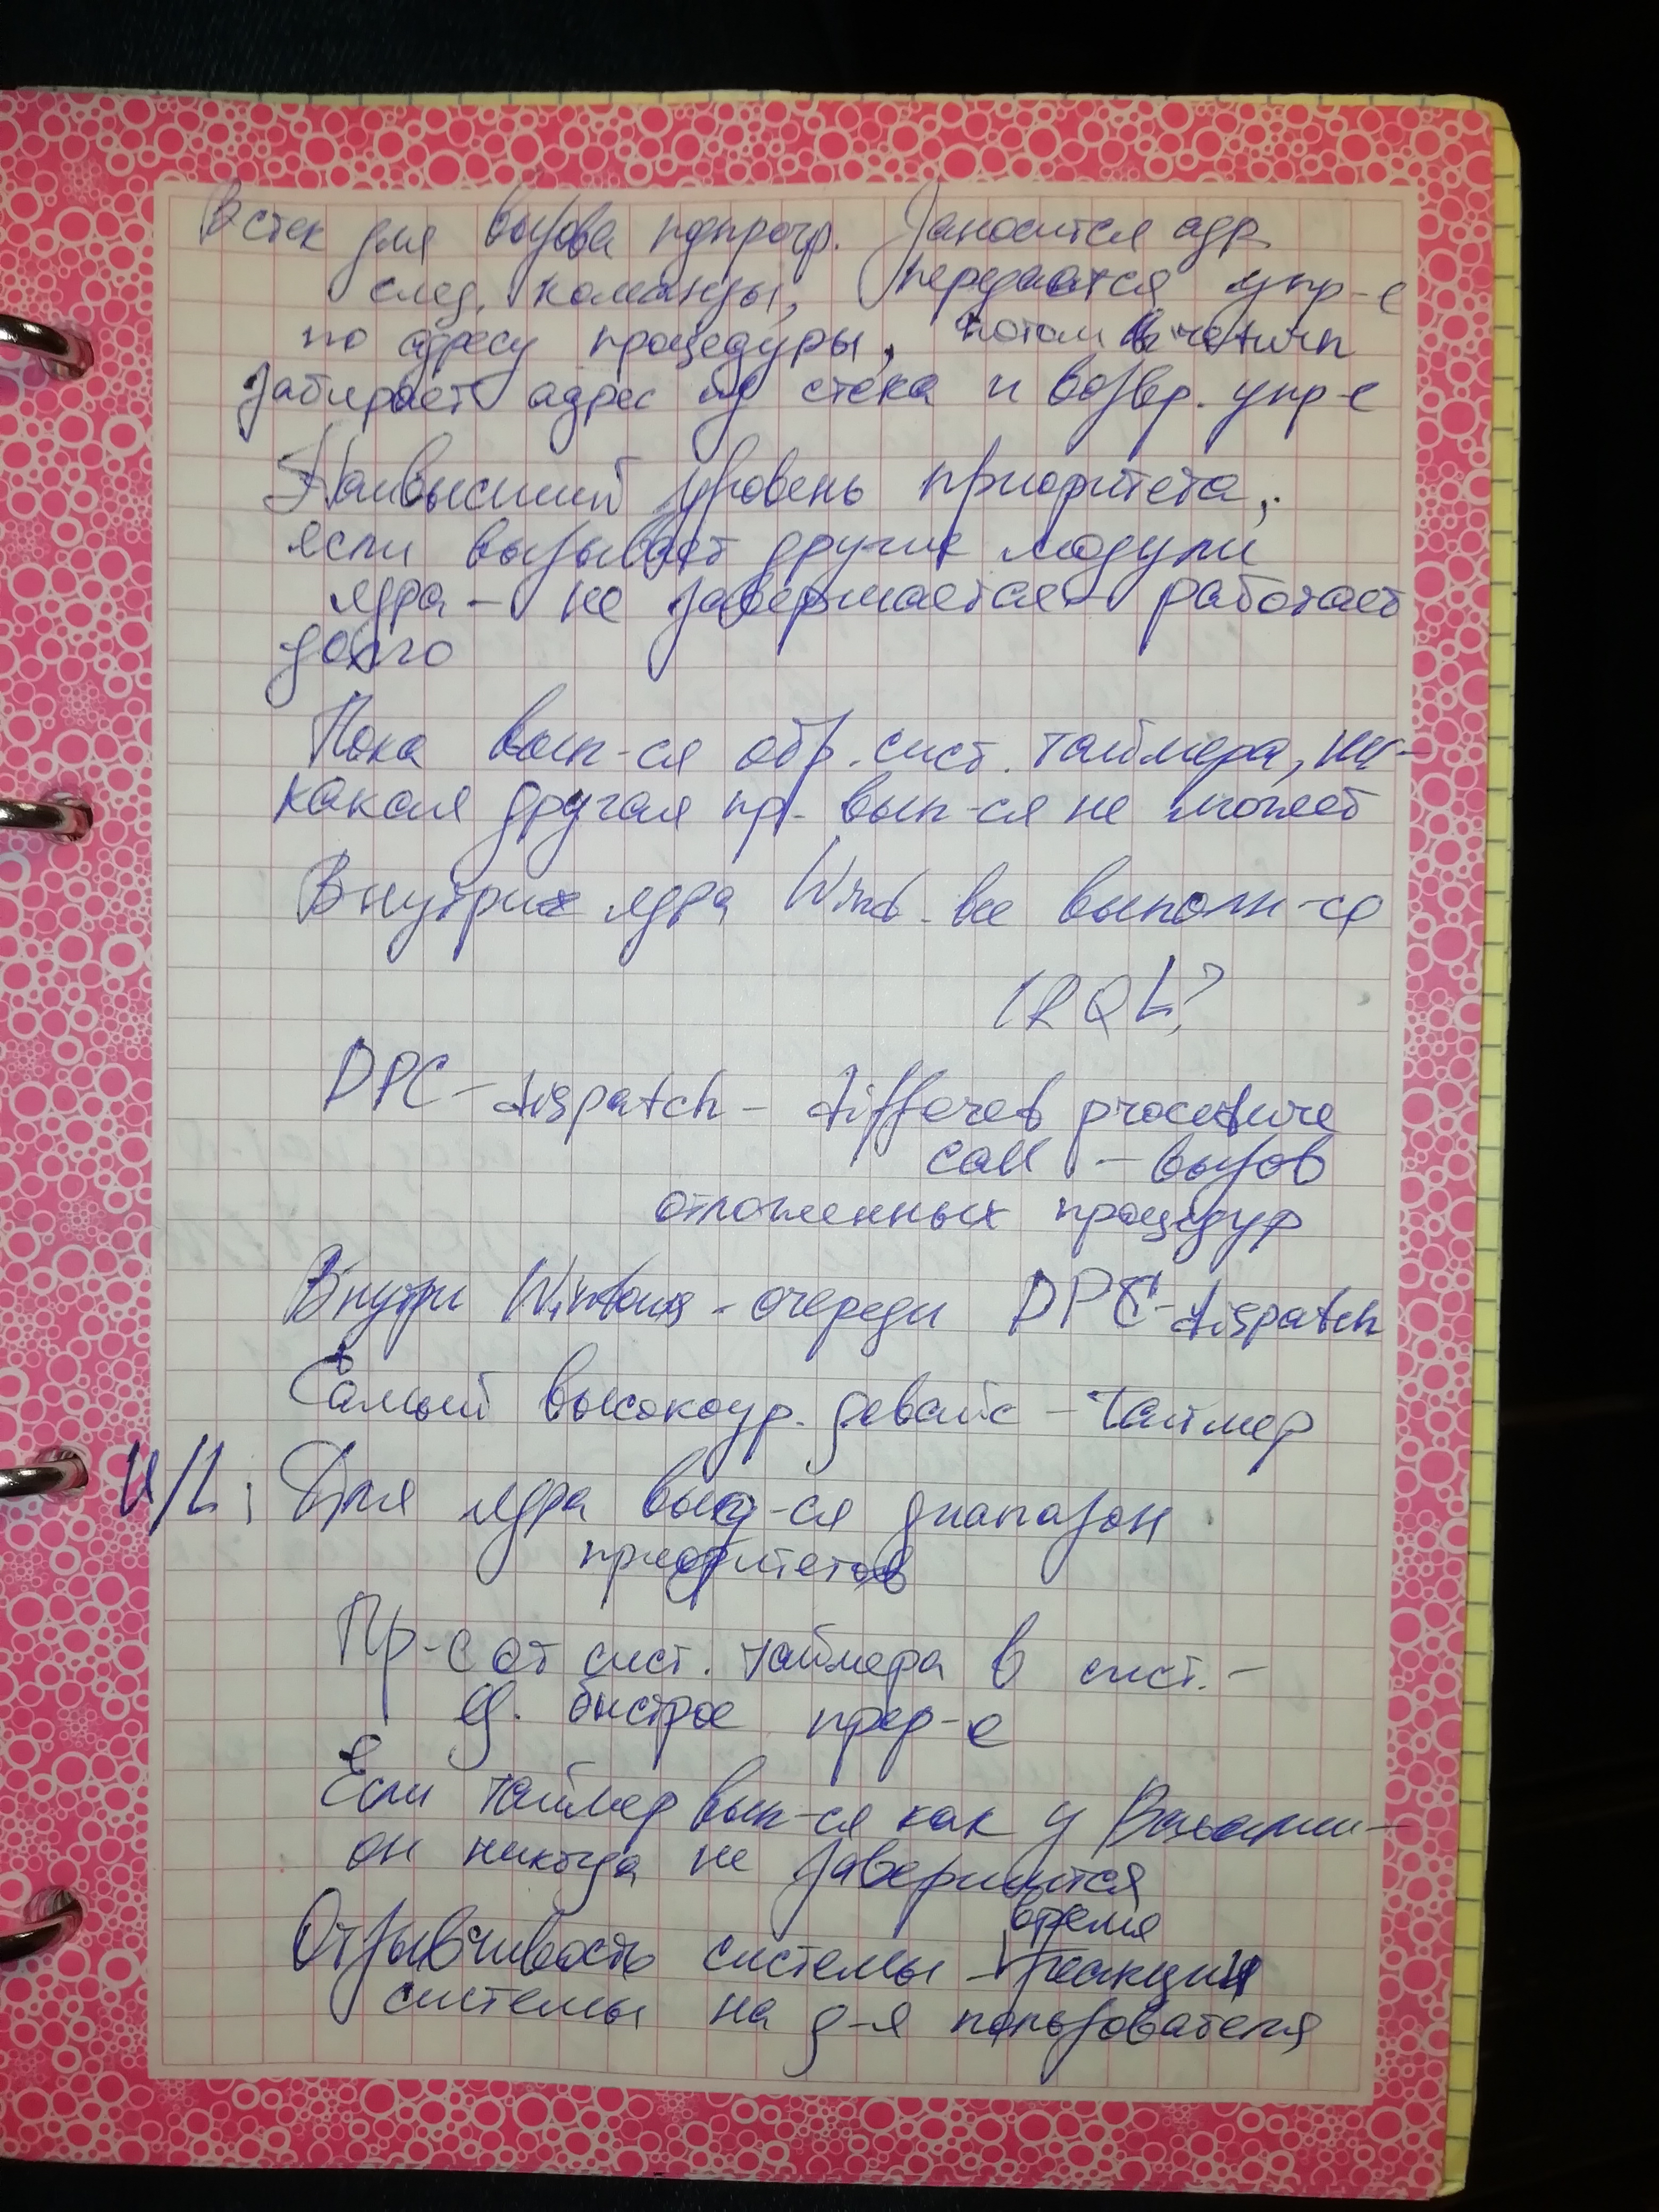 В стек для вызова пдпрогр. Заносится адр.
след. команды, передаются упр-е
по адресу процедуры, потом
Забирает адрес из стека и возвр. упр-е
Наивысший уровень приоритета,
если вызывает другие модули
ядра – не завершается – работает
долго
Пока вып-ся обр. сист. таймера, ни-
какая другая пр. вып-ся не может
Внутри ядра Wind. все выполн-ся
IRQL?
DPC – dispatch – differed procedure
call – вызов
отложенных процедур
Внутри Windows – очереди DPC-dispatch
Самый высокоур. девайс – таймер
U/L: Для ядра выд-ся диапазон
приоритетов
Пр-с от сист. таймера в сист. –
ед. быстрое прер-е
Если таймер вып-ся как у –
он никогда не завершится
Отзывчивость системы – время реакции
системы на д-я пользователя